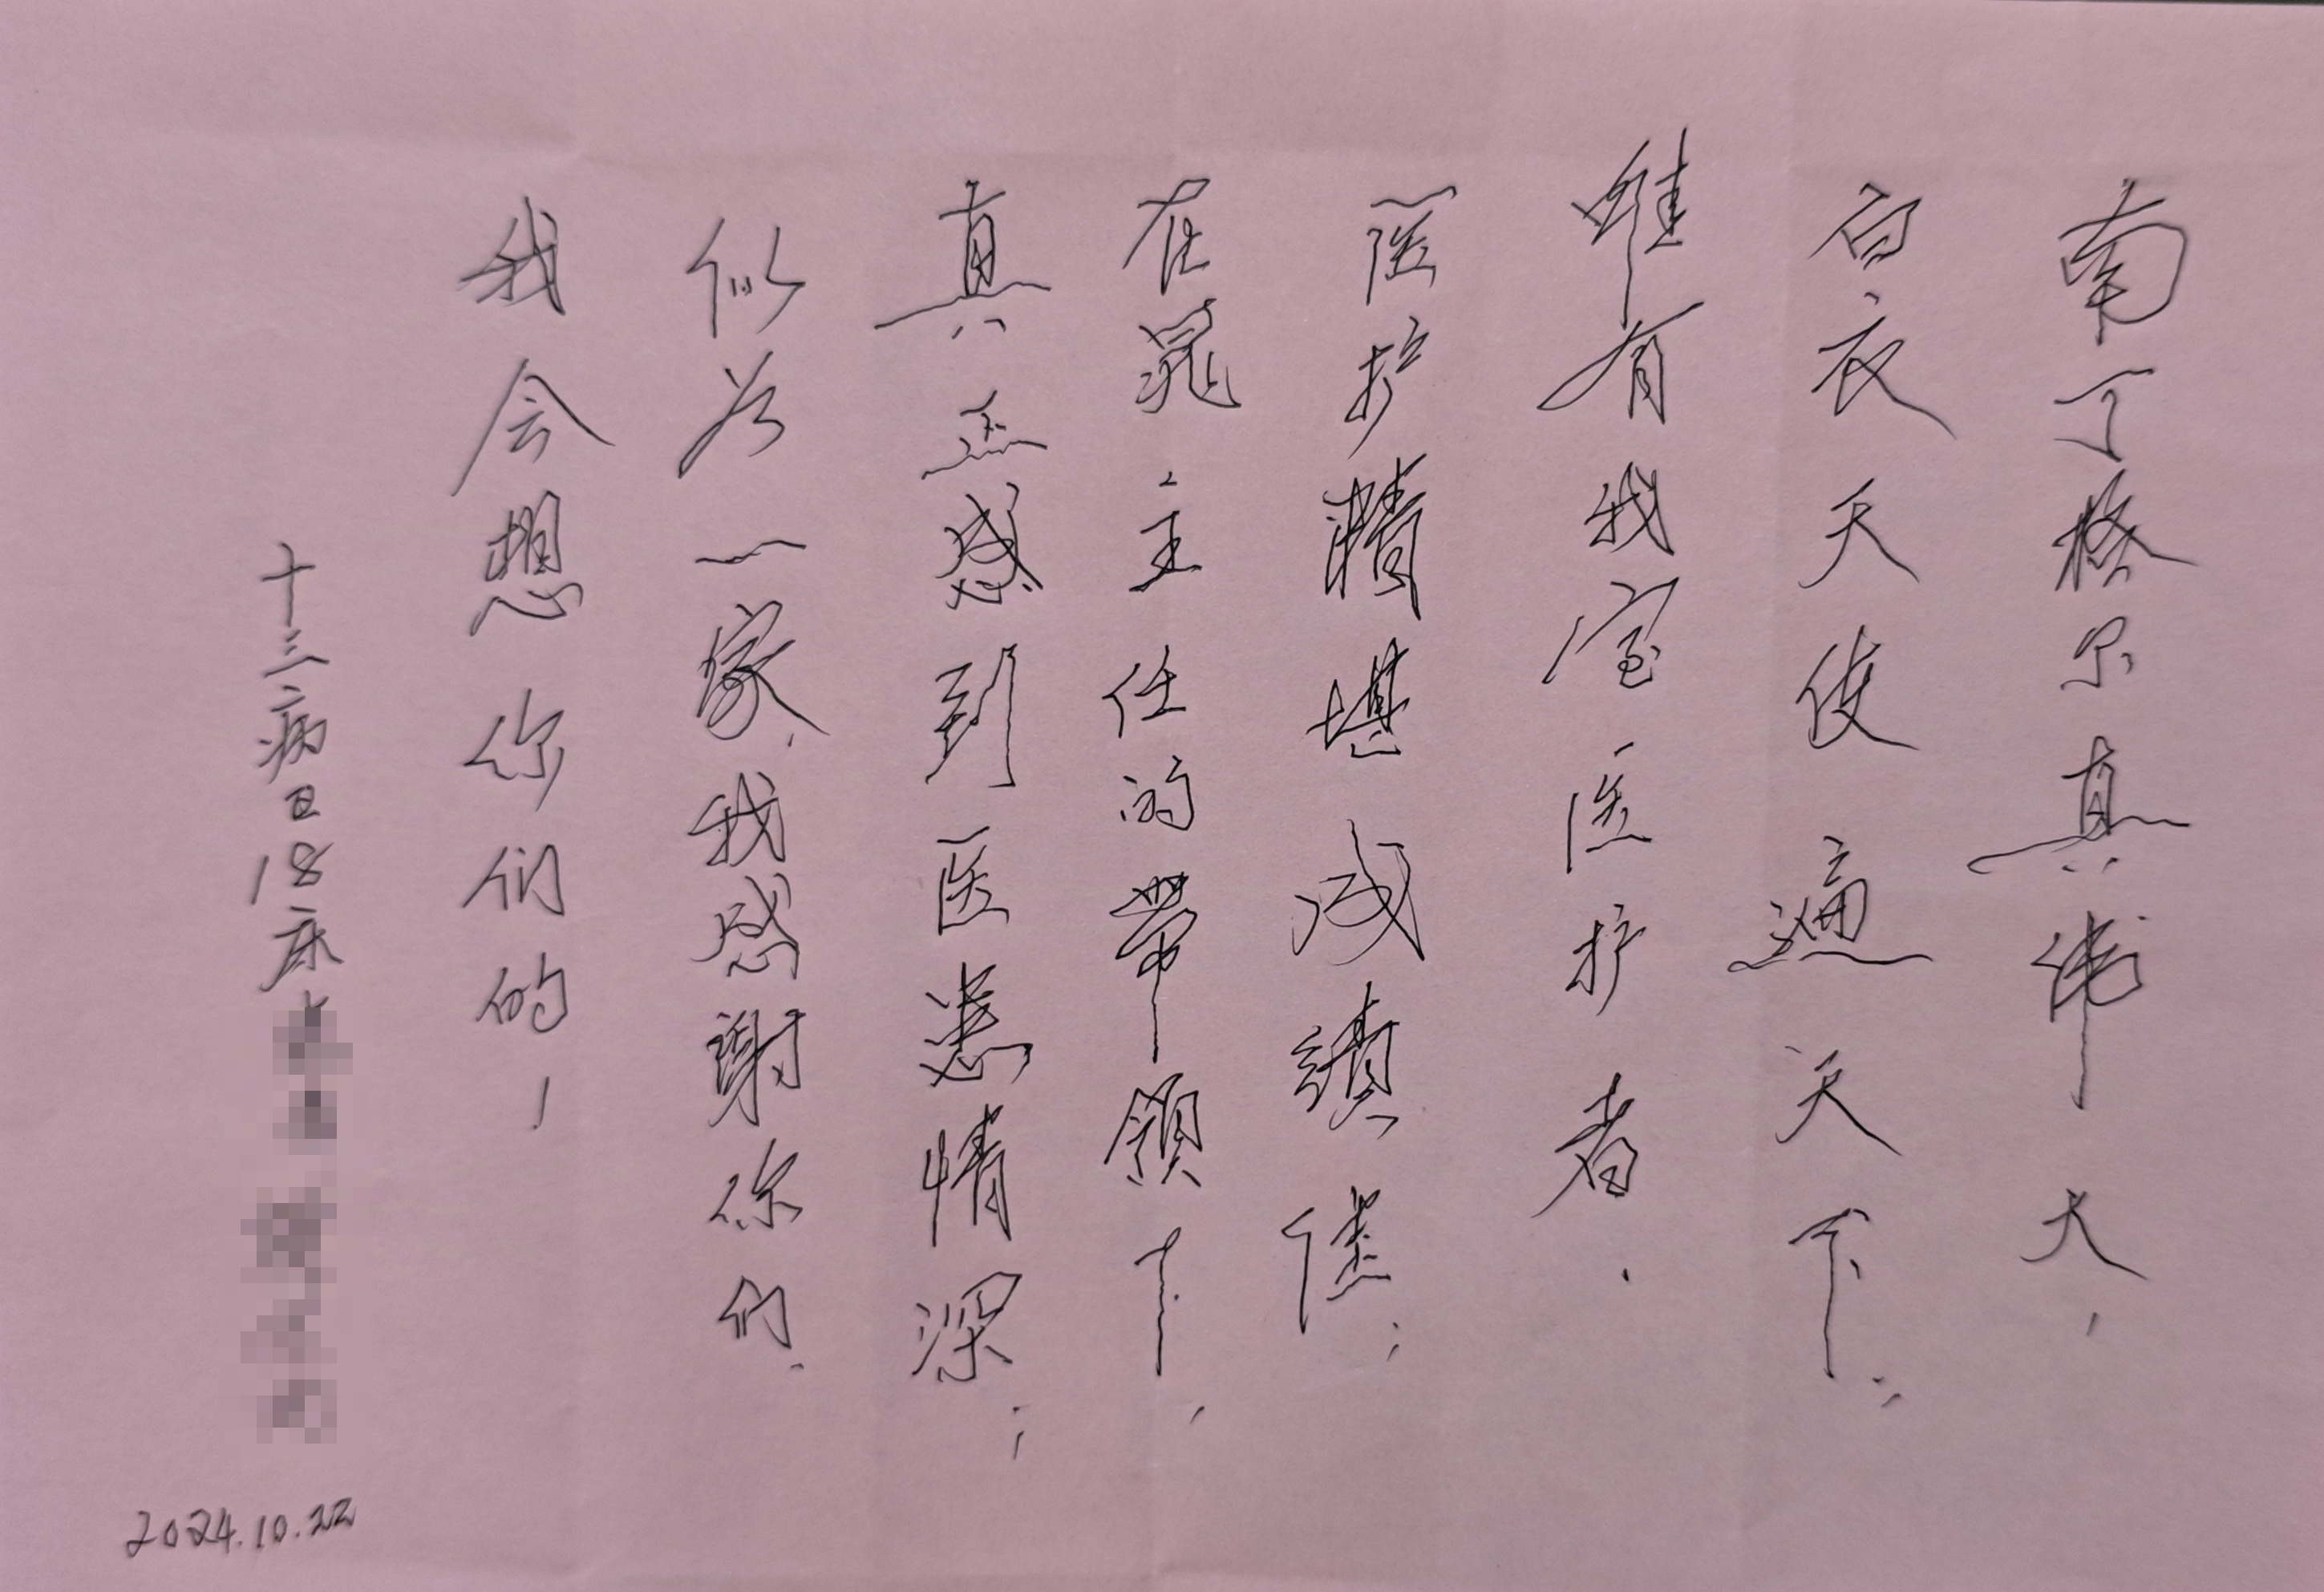 南丁格尔真伟大，
白衣天使遍天下；
唯有我室医护者．
医护精堪成绩佳；
在晁主任的带领下，
真正感到医患情深；
似若一家．我感谢你们．
我会想你们的！
十三病日18床
2024.10.22